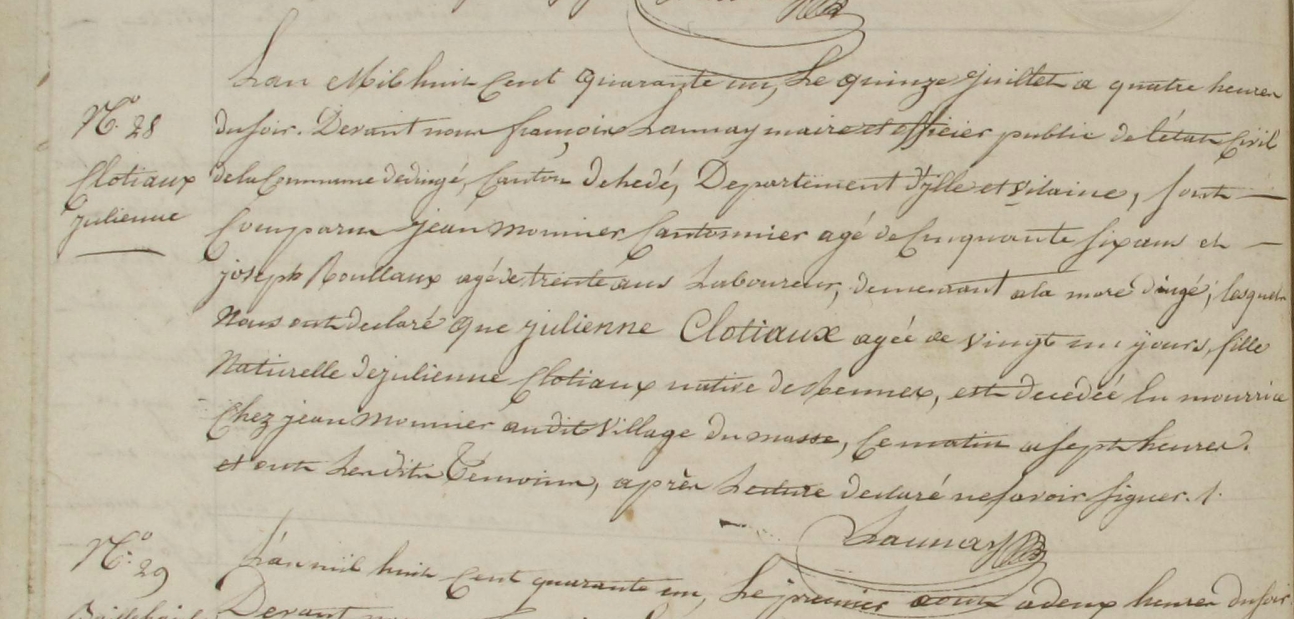 N.o 28
Clotiaux
julienne
Lan Mil huit Cent quarante un, Le quinze juillet a quatre heures
du soir. Devant nous françois Launay maire et officier public de l'état Civil
de la Commune de dingé, Canton de hedé, Departement d'ylle et vilaine, sont —
Comparus jean monnier Cantonnier agé de Cinquante six ans et —
joseph Roullaux agé de trente ans Laboureur, demeurant a la mare dingé, lesquels
Nous ont declaré que julienne Clotiaux agée de vingt un jours, fille
Naturelle de julienne Clotiaux native de Rennes, est decedée En nourrice
Chez jean monnier audit village du masse, Ce matin a sept heures.
et ont Les dits Témoins, après Lecture declaré ne savoir signer. /.
Launay
N.o 29
L'an mil huit Cent quarante un, Le premier aout a deux heures du soir.
Devant